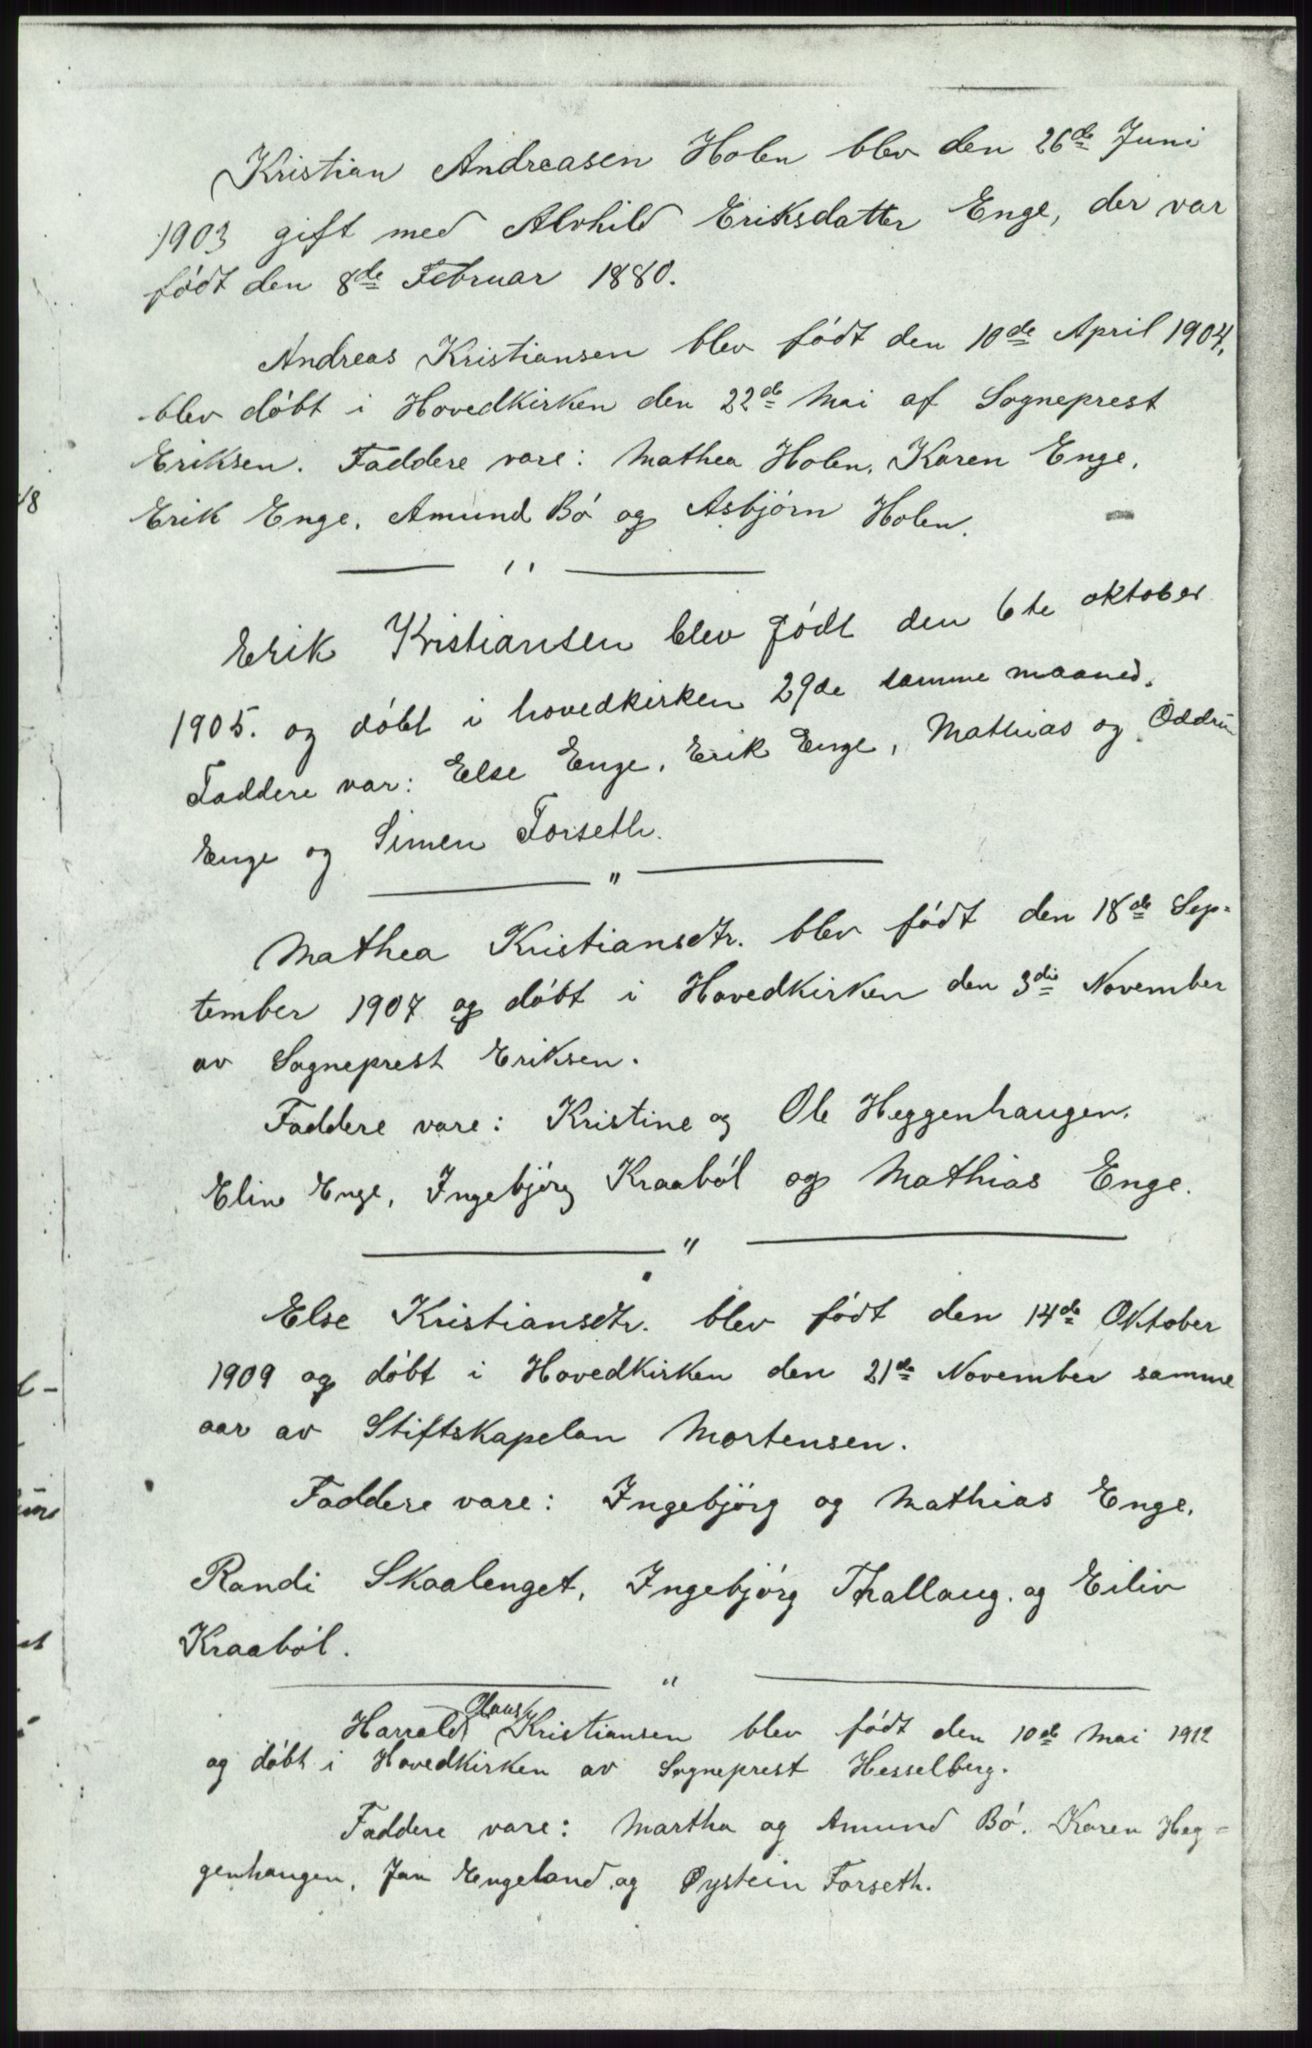 Kristian Andreasen Holen blev den 26de Juni
1903 gift med Alvhild Eriksdatter Enge, der var
født den 8de Februar 1880.
Andreas Kristiansen blev født den 10de April 1904,
blev døbt i Hovedkirken den 22de Mai af Sogneprest
Eriksen. Faddere vare: Mathea Holen, Karen Enge,
Erik Enge, Amund Bø og Asbjørn Holen.
Erik Kristiansen blev født den 6te oktober
1905. og døbt i hovedkirken 29de samme maaned.
Faddere var: Else Enge, Erik Enge, Mathias og Oddrū
Enge og Simen Forseth.
Mathea Kristiansdtr. blev født den 18de Sep-
tember 1907 og døbt i Hovedkirken den 3die November
av Sogneprest Eriksen.
Faddere vare: Kristine og Ole Heggenhaugen.
Eline Enge, Ingebjørg Kraabøl og Mathias Enge.
Else Kristiansdtr. blev født den 14de Oktober
1909 og døbt i Hovedkirken den 21de November samme
aar av Stiftskapelan Mortensen.
Faddere vare: Ingebjörg og Mathias Enge,
Randi Skaalenget, Ingebjørg Thallaug. og Eiliv
Kraabøl.
Harrald Olaus Kristiansen blev født den 10de Mai 1912
og døbt i Hovedkirken av Sogneprest Hesselberg.
Faddere vare: Martha og Amund Bø. Karen Heg-
genhaugen, Jan Engeland og Øystein Forseth.